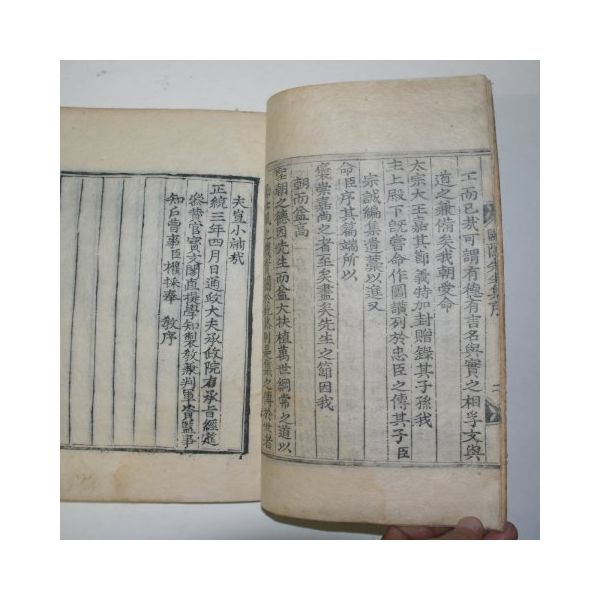 圃隱先生集序 二
工而已哉可謂有德有言名與實之相孚文與
道之兼備矣我朝受命
太宗大王嘉其節義特加封贈錄其子孫我
主上殿下旣嘗命作圖讚列於忠臣之傳其子臣
宗誠編集遺藁以進又
命臣序其篇端所以
褒崇嘉尙之者至矣盡矣先生之節因我
朝而益高
聖朝之德因先生而益大扶植萬世綱常之道以
之機實關於玆然則是集之傳於世者
夫豈小補哉
正統三年四月日通政大夫承政院右承旨經筵
參贊官寶文閣直提學知製敎兼判軍資監事
知戶曹事臣權採奉 敎序